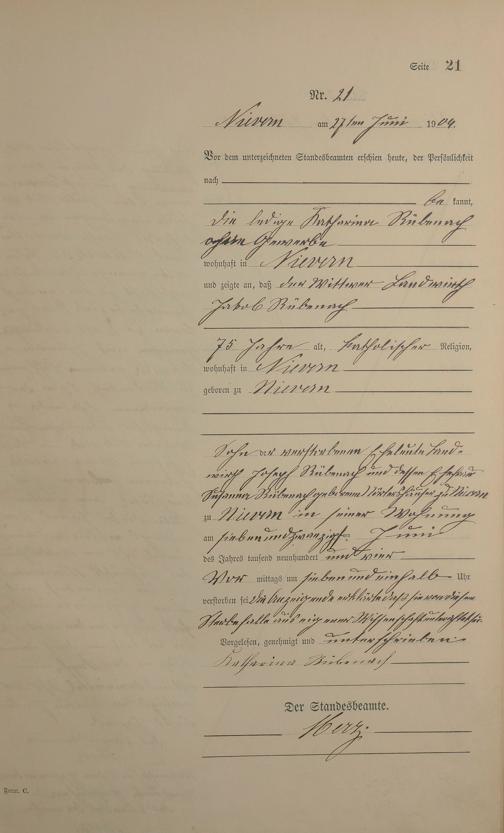 Seite 21
Nr. 21
Nievern am 27ten Juni 1904.
Vor dem unterzeichneten Standesbeamten erschien heute, der Persönlichkeit
nach
be kannt,
die ledige Katharina Rübenach
ohne Gewerbe
wohnhaft in Nievern
und zeigte an, daß der Wittwer Landwirth
Jakob Rübenach
75 Jahre alt, katholischer Religion,
wohnhaft in Nievern
geboren zu Nievern
Sohn der verstorbenen Eheleute Land-
wirth Joseph Rübenach und dessen Ehefrau
Susanna Rübenach geborene zu Nievern
zu Nievern in seiner Wohnung
am siebenundzwanzigst. Juni
des Jahres tausend neunhundert und vier
Vor mittags um sieben und einhalb Uhr
verstorben sei die Anzeigende erklärte daß sie von diesem
Sterbefalle aus eigener Wissenschaft unterrichtet sei.
Vorgelesen, genehmigt und unterschrieben
Katharina Rübenach
Der Standesbeamte.
Herz.
Form. C.